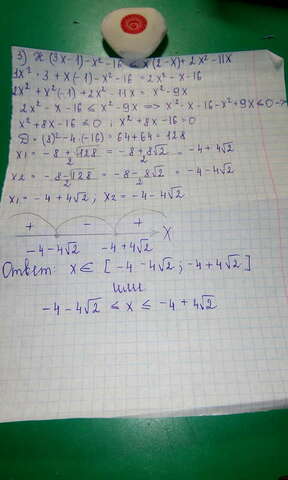 3) x (3x-1)-x²-16 ≤ x(2-x)+2x²-11x
x²·3+x·(-1)-x²-16=2x²-x-16
2x²+x²(-1)+2x²-11x=x²-9x
2x²-x-16 ≤ x²-9x => x²-x-16-x²+9x≤0->
x²+8x-16≤0; x²+8x-16=0
D=(8)²-4·(-16)=64+64=128
x1=(-8+√128)/2=(-8+8√2)/2=-4+4√2
x2=(-8-√128)/2=(-8-8√2)/2=-4-4√2
x1=-4+4√2; x2=-4-4√2
+ - +
-4-4√2 -4+4√2 x
Ответ: x∈[-4-4√2;-4+4√2]
или
-4-4√2 ≤ x ≤ -4+4√2